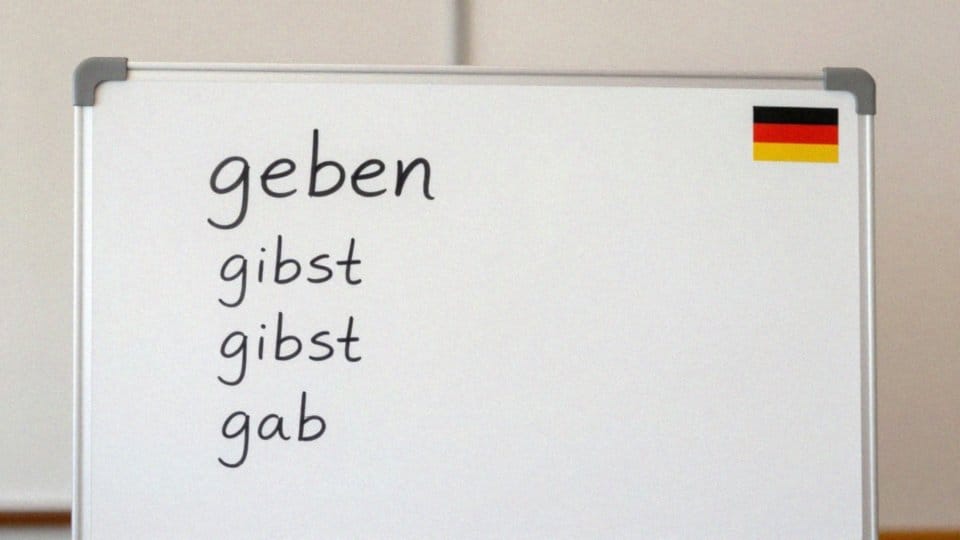 geben
gibst
gibst
gab